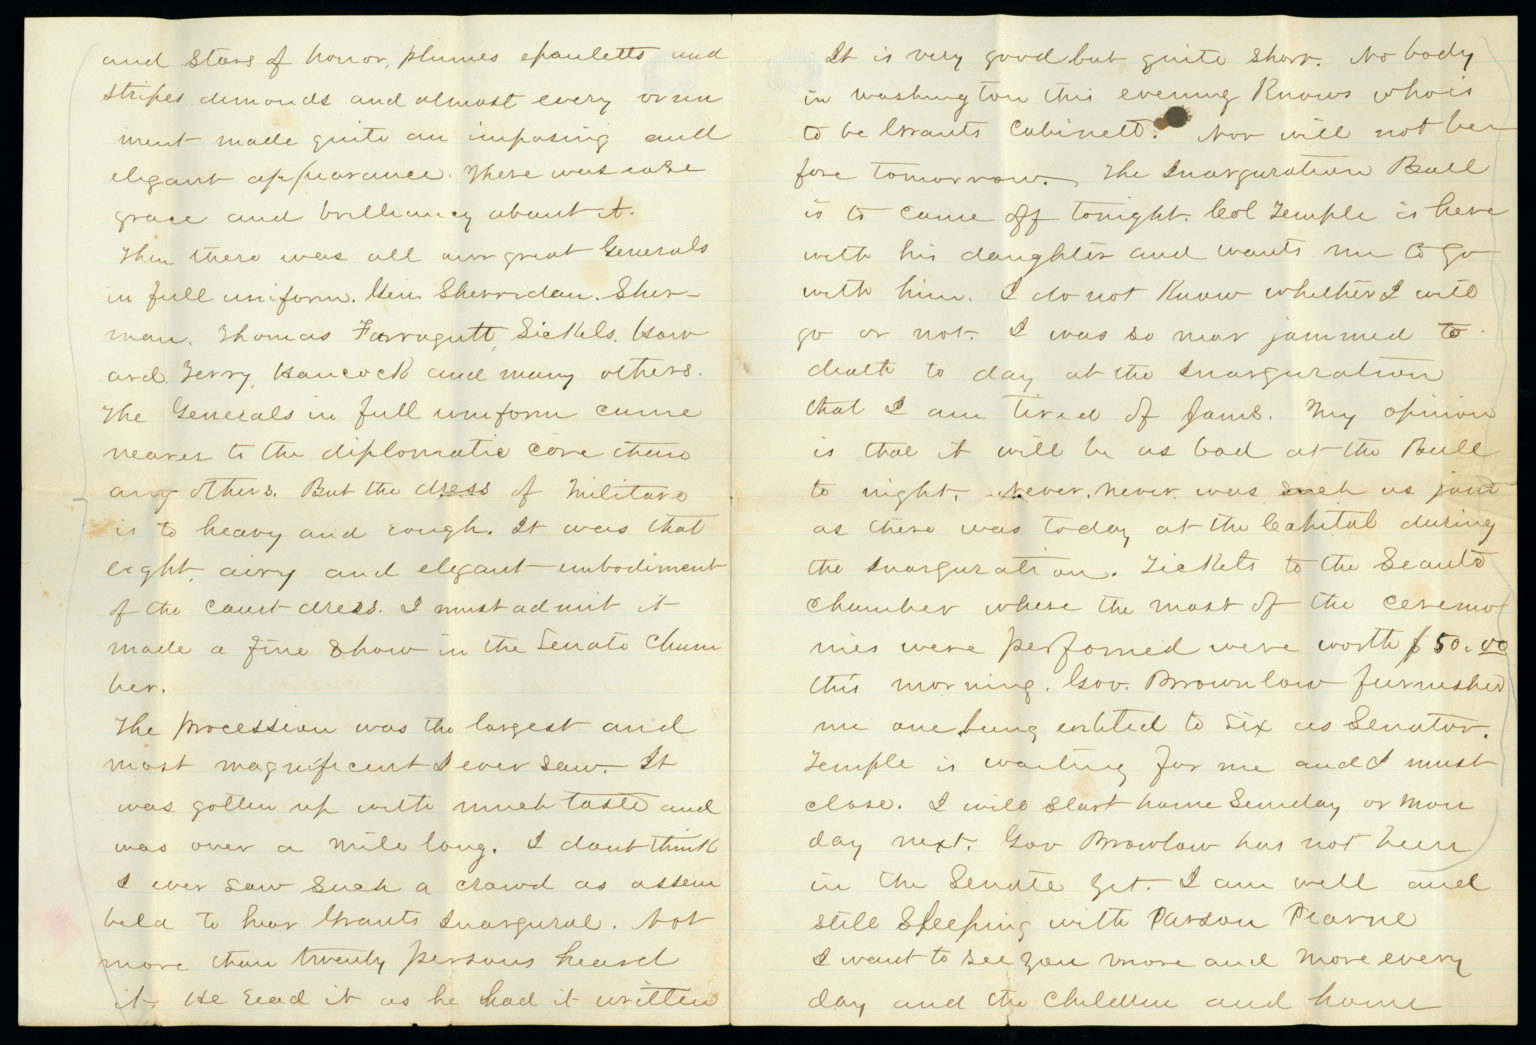 and stars of honor, plumes epauletts and
stripes dimonds and almost every orna
ment made quite an imposing and
elegant appearance. There was ease
grace and brilliancy about it.
Then there was all our great Generals
in full uniform. Gen Sherridan. Sher-
man. Thomas Farragutt, Sickels. How
ard. Terry, Hancock and many others.
The Generals in full uniform came
nearer to the diplomatic core than
any others. But the dress of Militare
is to heavy and rough. It was that
light, airy and elegant embodiment
of the court dress. I must admit it
made a fine show in the Senate Cham
ber.
The procession was the largest and
most magnificent I ever saw. It
was gotten up with much taste and
was over a mile long. I dont think
I ever saw such a crowd as assem
beld to hear Grants Inargural. Not
more than twenty persons heard
it. He read it as he had it written
It is very good but quite short. No body
in washington this evening Knows who is
to be Grants Cabinett. Nor will not be
fore tomorrow. The Inarguration Ball
is to come off tonight. Col Temple is here
with his daughter and wants me to go
with him. I do not Know whether I will
go or not. I was so near jammed to
death to day at the Inarguration
that I am tired of Jams. My opinion
is that it will be as bad at the Ball
to night. Never, never was such as jam
as there was today at the Capitol during
the Inarguration. Tickets to the Seante
Chamber where the most of the ceremo
nies were performed were worth $50.00
this morning. Gov. Brownlow furnished
me one being entited to six as Senator.
Temple is waiting for me and I must
close. I will start home Sunday or Mon
day next. Gov Browlow has not been
in the Senate yet. I am well and
still Sleeping with Parson Pearne
I want to see you more and more every
day and the Children and home